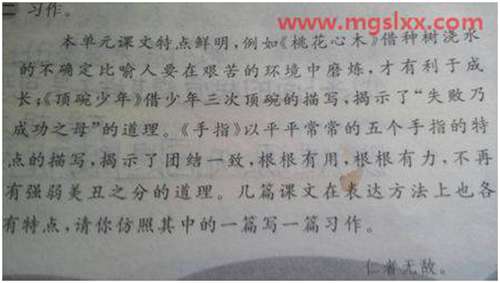 www.mgslxx.com
二 习作。
本单元课文特点鲜明,例如《桃花心木》借种树浇水
的不确定比喻人要在艰苦的环境中磨炼,才有利于成
长;《顶碗少年》借少年三次顶碗的描写,揭示了“失败乃
成功之母”的道理。《手指》以平平常常的五个手指的特
点的描写,揭示了团结一致,根根有用,根根有力,不再
有强弱美丑之分的道理。几篇课文在表达方法上也各
有特点,请你仿照其中的一篇写一篇习作。
仁者无敌。